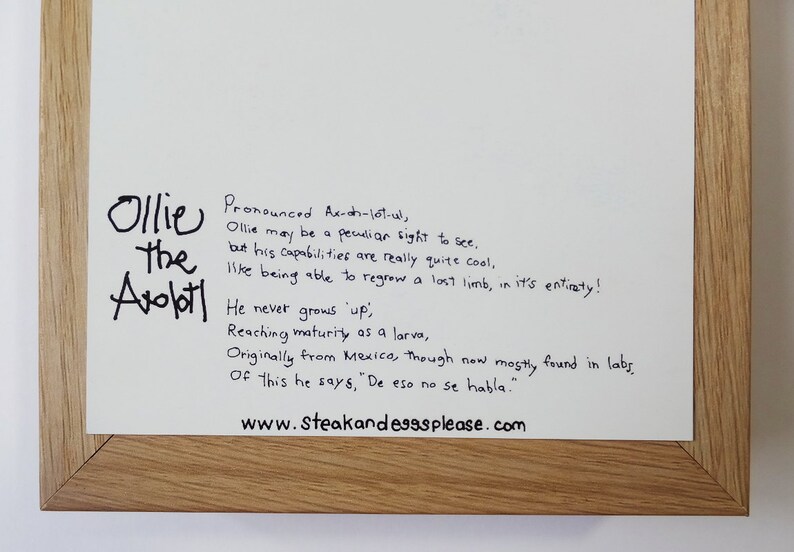 Ollie
the
Axolotl
Pronounced Ax-oh-lot-ul,
Ollie may be a peculiar sight to see,
but his capabilities are really quite cool,
like being able to regrow a lost limb, in it's entirety!
He never grows 'up',
Reaching maturity as a larva,
Originally from Mexico, though now mostly found in labs.
Of this he says, "De eso no se habla."
www.steakandeggsplease.com